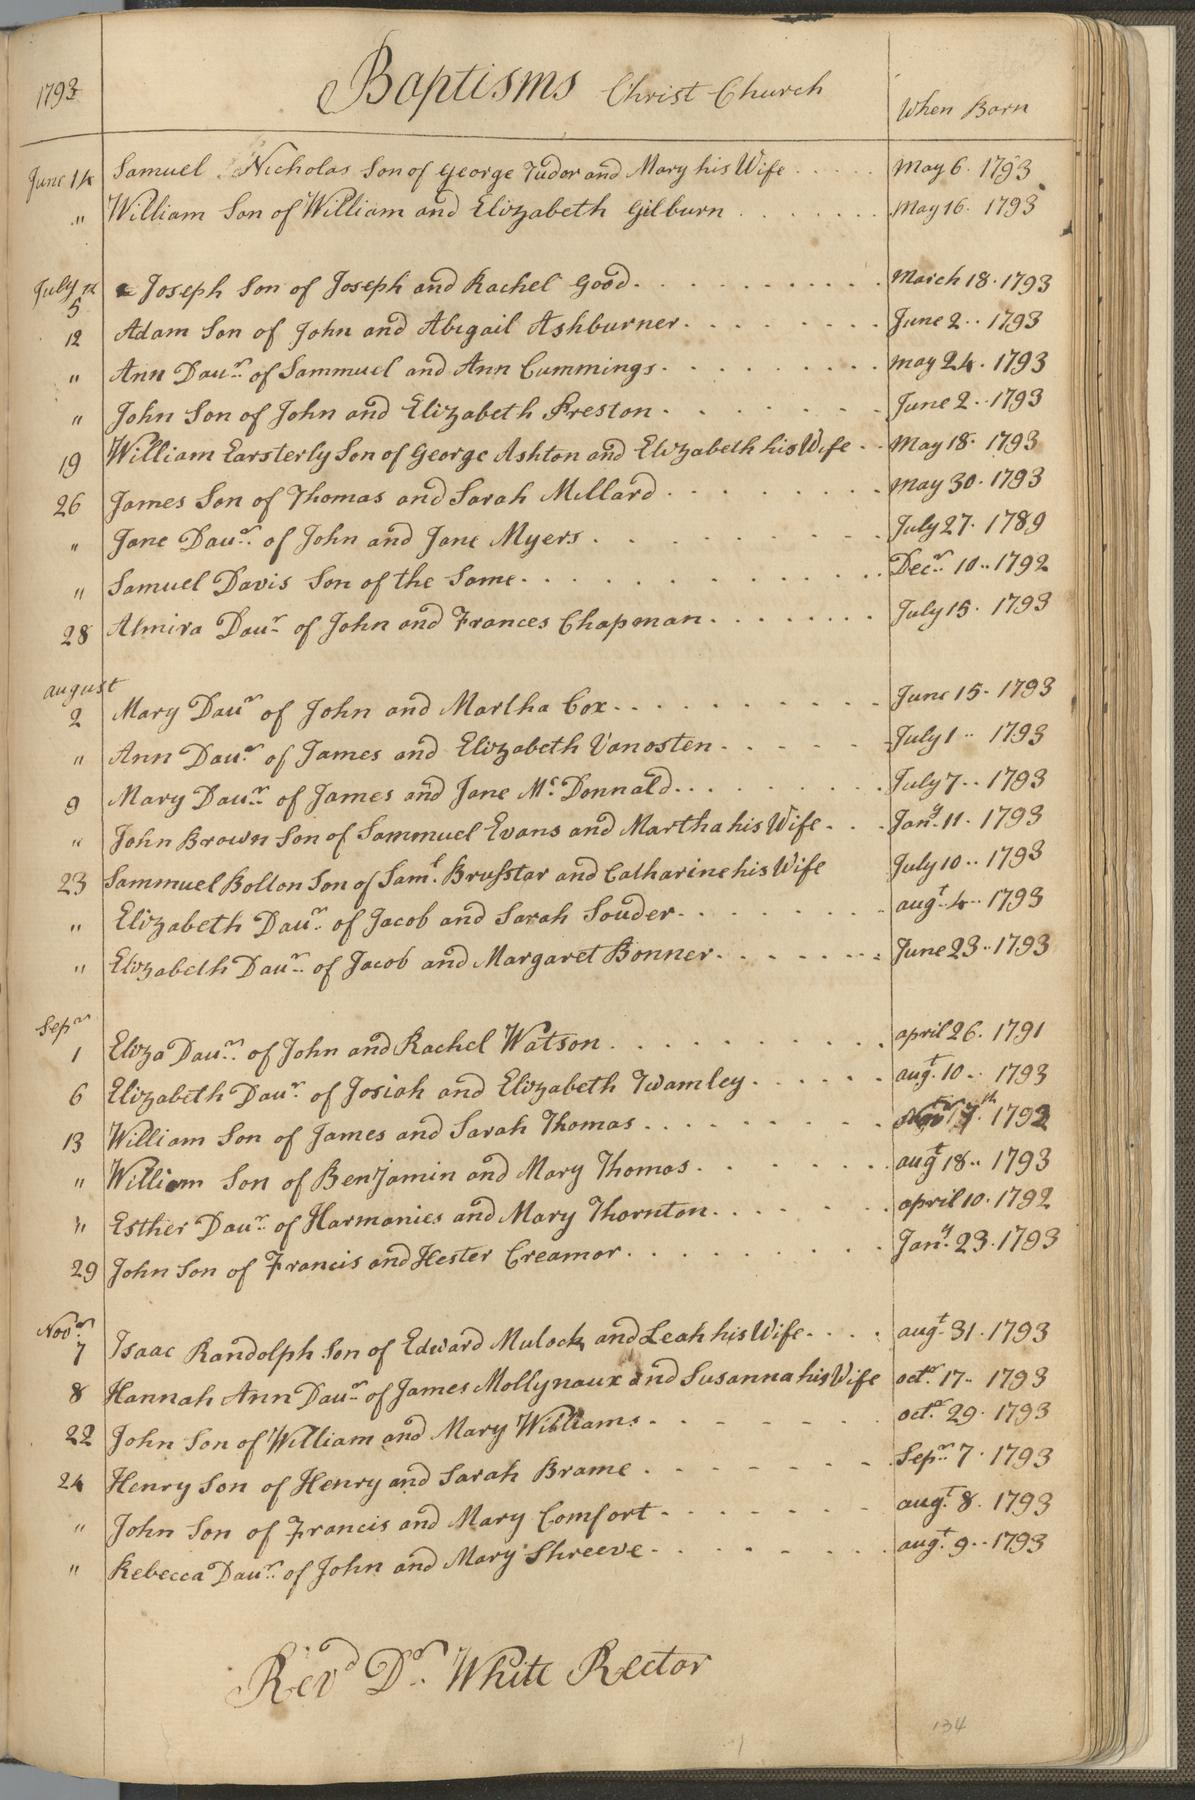 1793 Baptisms Christ Church When Born
June 14 Samuel Nicholas Son of George Tudor and Mary his Wife May 6. 1793
" William Son of William and Elizabeth Gilburn May 16. 1793
July
5 Joseph Son of Joseph and Rachel Good March 18. 1793
12 Adam Son of John and Abigail Ashburner June 2.. 1793
" Ann Daur. of Sammuel and Ann Cummings May 24. 1793
" John Son of John and Elizabeth Preston June 2.. 1793
19 William Earsterly Son of George Ashton and Elizabeth his Wife May 18. 1793
26 James Son of Thomas and Sarah Millard May 30. 1793
" Jane Daur. of John and Jane Myers July 27. 1789
" Samuel Davis Son of the Same Decr. 10.. 1792
28 Almira Daur. of John and Frances Chapman July 15. 1793
august
2 Mary Daur of John and Martha Cox June 15. 1793
" Ann Daur. of James and Elizabeth Vanosten July 1.. 1793
9 Mary Daur. of James and Jane Mc. Donnald July 7.. 1793
" John Brown Son of Sammuel Evans and Martha his Wife Jany. 11. 1793
23 Sammuel Bolton Son of Saml. Brusstar and Catharine his Wife July 10.. 1793
" Elizabeth Daur. of Jacob and Sarah Souder augt. 4.. 1793
" Elizabeth Daur. of Jacob and Margaret Bonner June 23.. 1793
Sepr
1 Eliza Daur. of John and Rachel Watson april 26. 1791
6 Elizabeth Daur. of Josiah and Elizabeth Twamley augt. 10.. 1793
13 William Son of James and Sarah Thomas 1792
" William Son of Benjamin and Mary Thomas augt 18.. 1793
" Esther Daur. of Harmanies and Mary Thornton april 10. 1792
29 John Son of Francis and Hester Creamor Jany. 23. 1793
Novr.
7 Isaac Randolph Son of Edward Mulock and Leah his Wife augt. 31. 1793
8 Hannah Ann Daur. of James Mollynaux and Susanna his Wife octr. 17.. 1793
22 John Son of William and Mary Williams octr. 29. 1793
24 Henry Son of Henry and Sarah Brame Sepr. 7. 1793
" John Son of Francis and Mary Comfort augt. 8. 1793
" Rebecca Daur. of John and Mary Shreeve augt. 9.. 1793
Revd Dr. White Rector
134